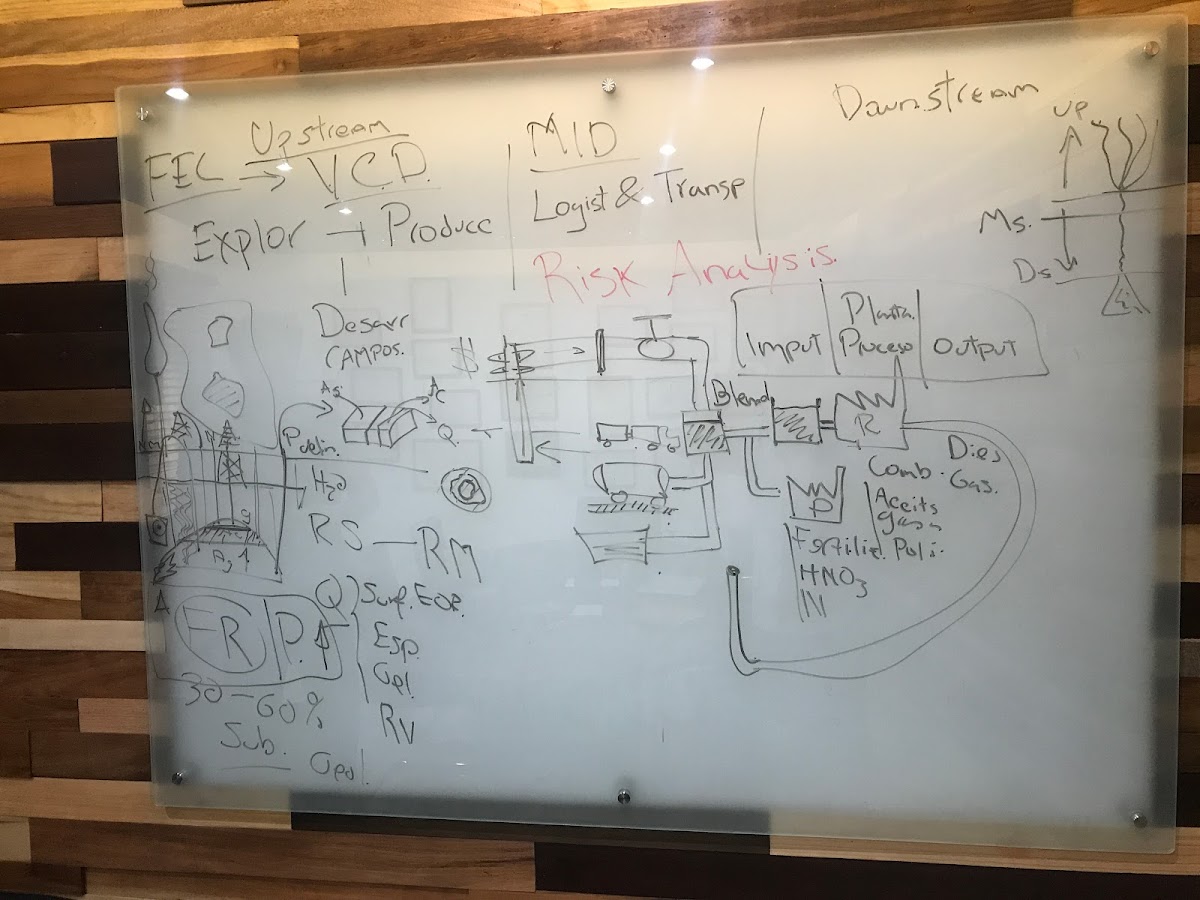 Upstream
FEL → V.C.D.
Explor → Produce
Desarr
CAMPOS.
MID
Logist & Transp
Risk Analysis.
Downstream
UP
Ms.
Ds
Imput
Planta
Proceso
Output
$
Ac
Q.
Blend
R
P
H2O
RS — RM
FR
P. ↑
30-60%
Sub.
Geol.
Q
Surf. EOR.
Esp.
Gel.
RV
Dies
Comb. Gas.
Aceits
Fertiliz. Poli.
HNO3
N